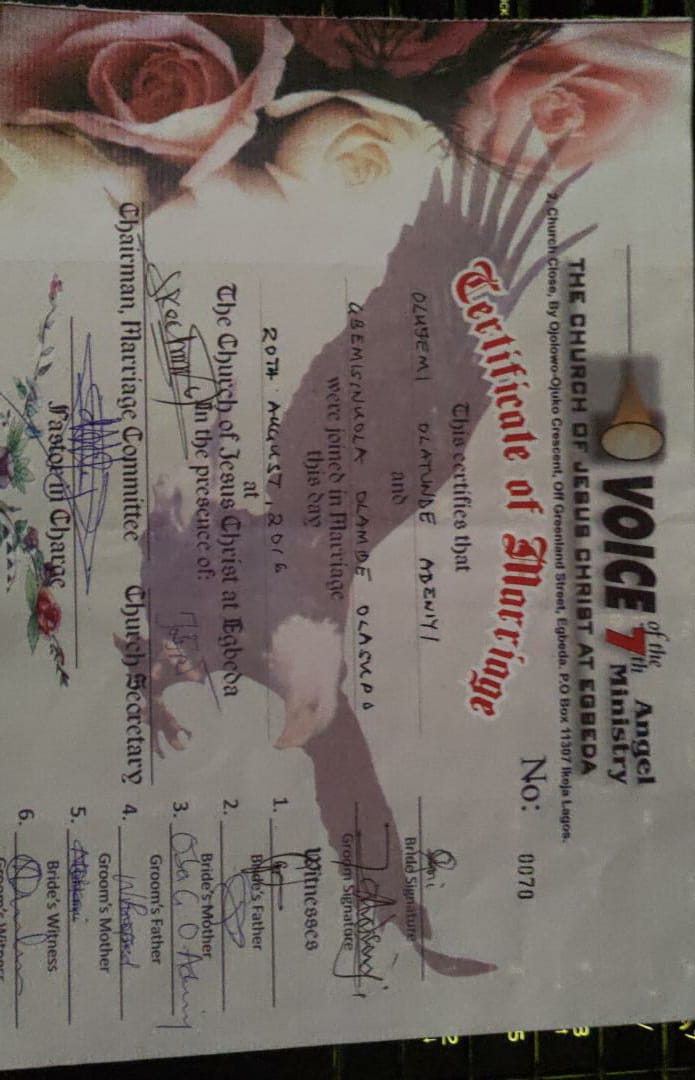 VOICE of the 7th Angel Ministry
THE CHURCH OF JESUS CHRIST AT EGBEDA
2, Church Close, By Ojolowo-Ojuko Crescent, Off Greenland Street, Egbeda. P.O Box 11307 Ikeja Lagos.
No: 0070
Certificate of Marriage
This certifies that
OLUYEMI OLATUNDE ADENIYI
and
GBEMISINUOLA OLAMIDE OLASUPO
were joined in Marriage
this day
20TH AUGUST, 2016
at
The Church of Jesus Christ at Egbeda
In the presence of:
Chairman, Marriage Committee
Church Secretary
Pastor in Charge
Bride Signature
Groom Signature
Witnesses
1.
Bride's Father
2.
Bride's Mother
3.
Groom's Father
4.
Groom's Mother
5.
Bride's Witness
6.
Groom's Witness